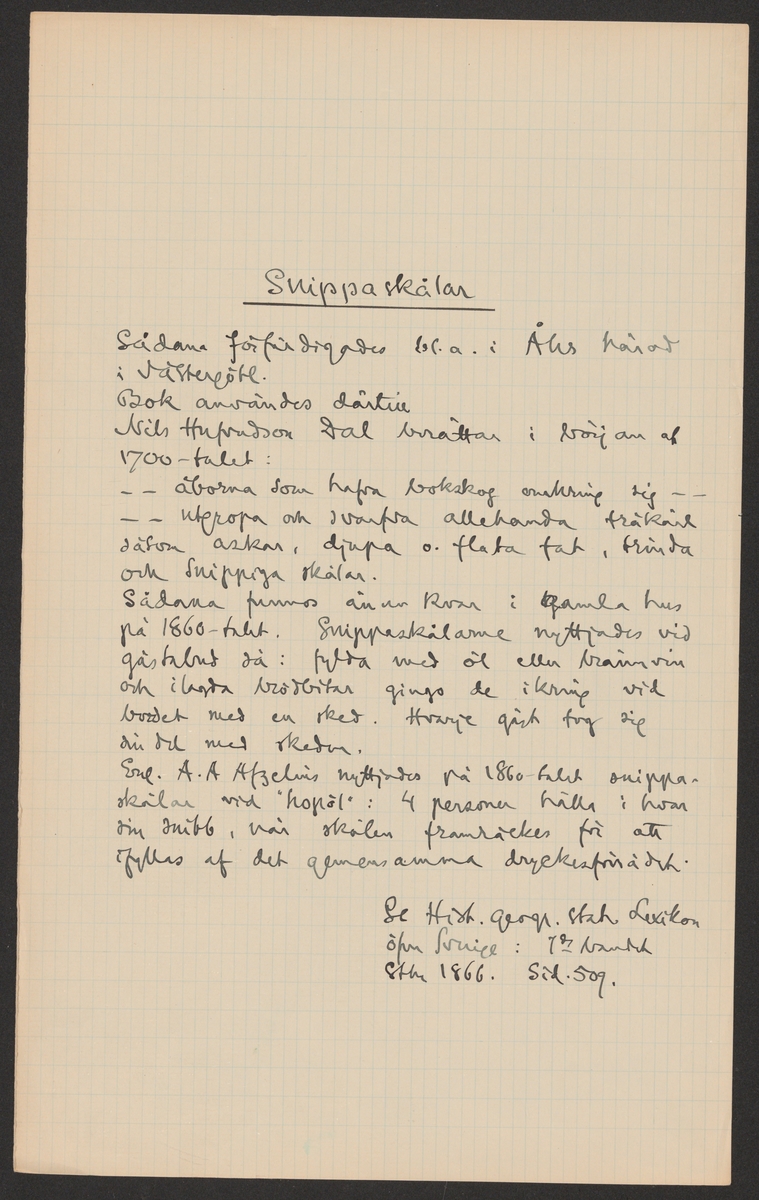 Snippaskålar
Sådana förfärdigades bl.a. i Åhs härad
i Västergötl.
Bok användes därtill
Nils Hufvudson Dal berättar i början af
1700-talet:
-- åborna som hafva bokskog omkring sig --
-- utgröpa och svarfva allehanda träkäril
såsom askar, djupa o. flata fat, trinda
och snippiga skålar.
Sådana funnos ännu kvar i gamla hus
på 1860-talet. Snippaskålarne nyttjades vid
gästabud så: fylda med öl eller brännvin
och ilagda brödbitar gingo de ikring vid
bordet med en sked. Hvarje gäst tog sig
sin del med skeden.
Enl. A. A Afzelius nyttjades på 1860-talet snippa-
skålar vid "hopöl": 4 personer hålla i hvar
sin snibb, när skålen framräckes för att
ifyllas af det gemensamma dryckesförrådet.
Se Hist. geogr. stat. Lexikon
öfver Sverige: 7de bandet
Sthm 1866. Sid. 509.